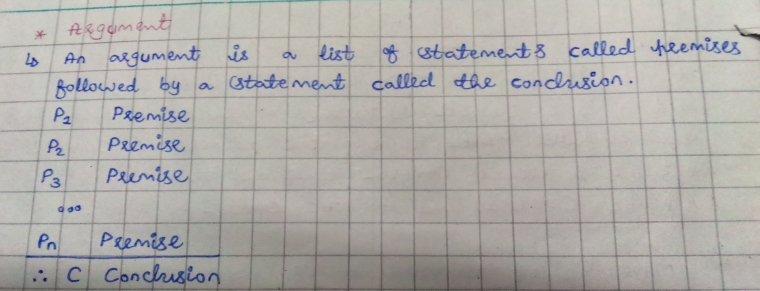 * Argument
↳ An argument is a list of statements called premises
followed by a statement called the conclusion.
P₂ Premise
P₂ Premise
P₃ Premise
ooo
Pn Premise
∴ C Conclusion